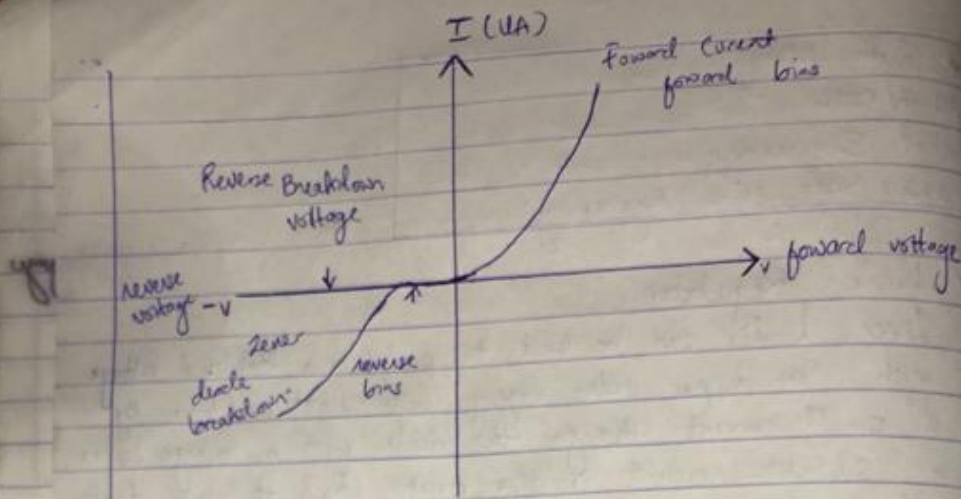 I (UA)
Foward Curent
forward bias
Reverse Breakdown
voltage
v foward voltage
reverse
voltage -v
Zener
diode
breakdown
reverse
bias